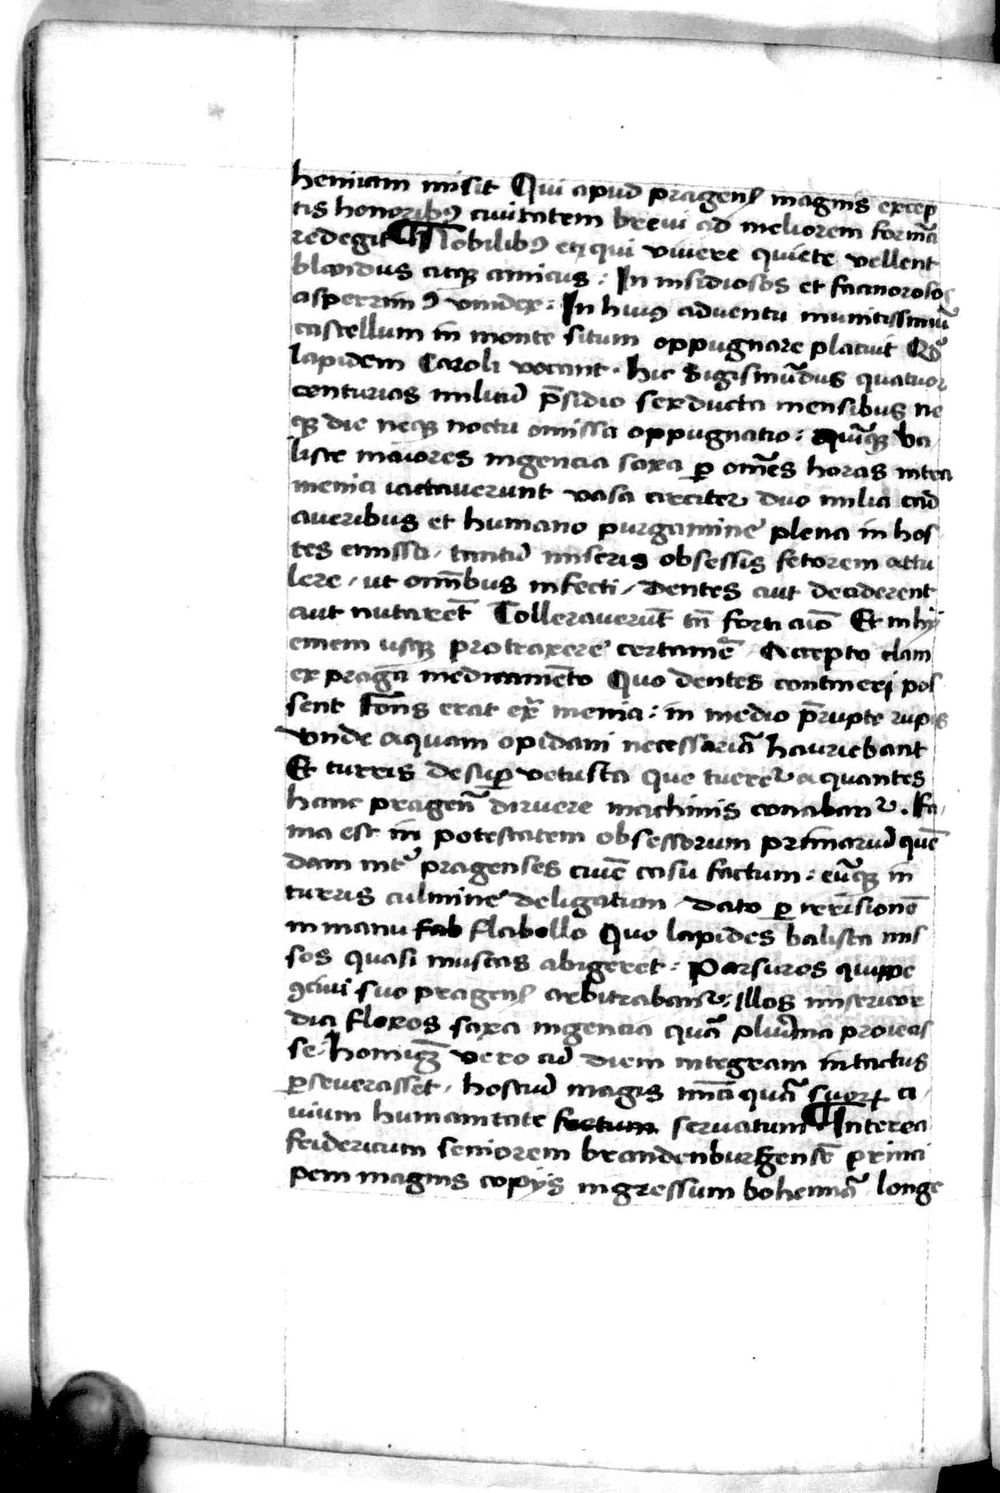 hemiam misit Qui apud pragenſ magnis excep
tis honoribꝰ ciuitatem breui ad meliorem formā
redegit ¶ Nobilibꝰ eqꝫ qui viuere quiete vellent
blandus atqꝫ amicus : In insidiosos et facinorosos
asperrimꝰ vindex : In huiꝰ aduentu munitissimū
castellum in monte situm oppugnare placuit Qđ
lapidem Caroli vocant · hic Sigismūdus quatuor
centurias militū p̄sidio sex ducta mensibus ne
qꝫ die neqꝫ noctu omissa oppugnatio : Quīqꝫ ba
liste maiores ingencia saxa ꝑ om̄es horas intra
menia iactauerunt vasa circiter duo milia cad
aueribus et humano purgamine plena in hos
tes emissa / tantū miseris obsessis fetorem attu
lere / ut omībus infecti / dentes aut deciderent
aut nutarēt Tollerauerūt tn̄ forti aīo Et in hy
emem usqꝫ protraxere certamē / Accepto clam
ex praga medicamēto Quo dentes contineri pos
sent Fons erat ex͂ menia : in medio p̄rupte rupis
vnde aquam opidani necessariā hauriebant
Et turris desuꝑ vetusta que tueret͛ aquantes
hanc pragenſ̄ diruere machinis conabant͛ . Fa
ma est in potestatem obsessorum primariū quē
dam int͛ pragenses ciuē casu factum : eūqꝫ in
turris culmine deligatum / dato ꝑ irrisionē
in manu fab flabello Quo lapides balista mis
sos quasi muscas abigeret : Parsuros quippe
ꝯciui suo pragenſ arbitrabant͛ : Illos misericor
dia flexos saxa ingencia quā plurīma proiecis
se / homiēꝫ vero ad diem integram intactus
ꝑseuerasset / hostiū magis īmici quā suoꝝ ci
uium humanitate factum seruatum ¶ Interea
feidericum seniorem brandenburgensē princi
pem magnis copijs ingressum bohemiā longe